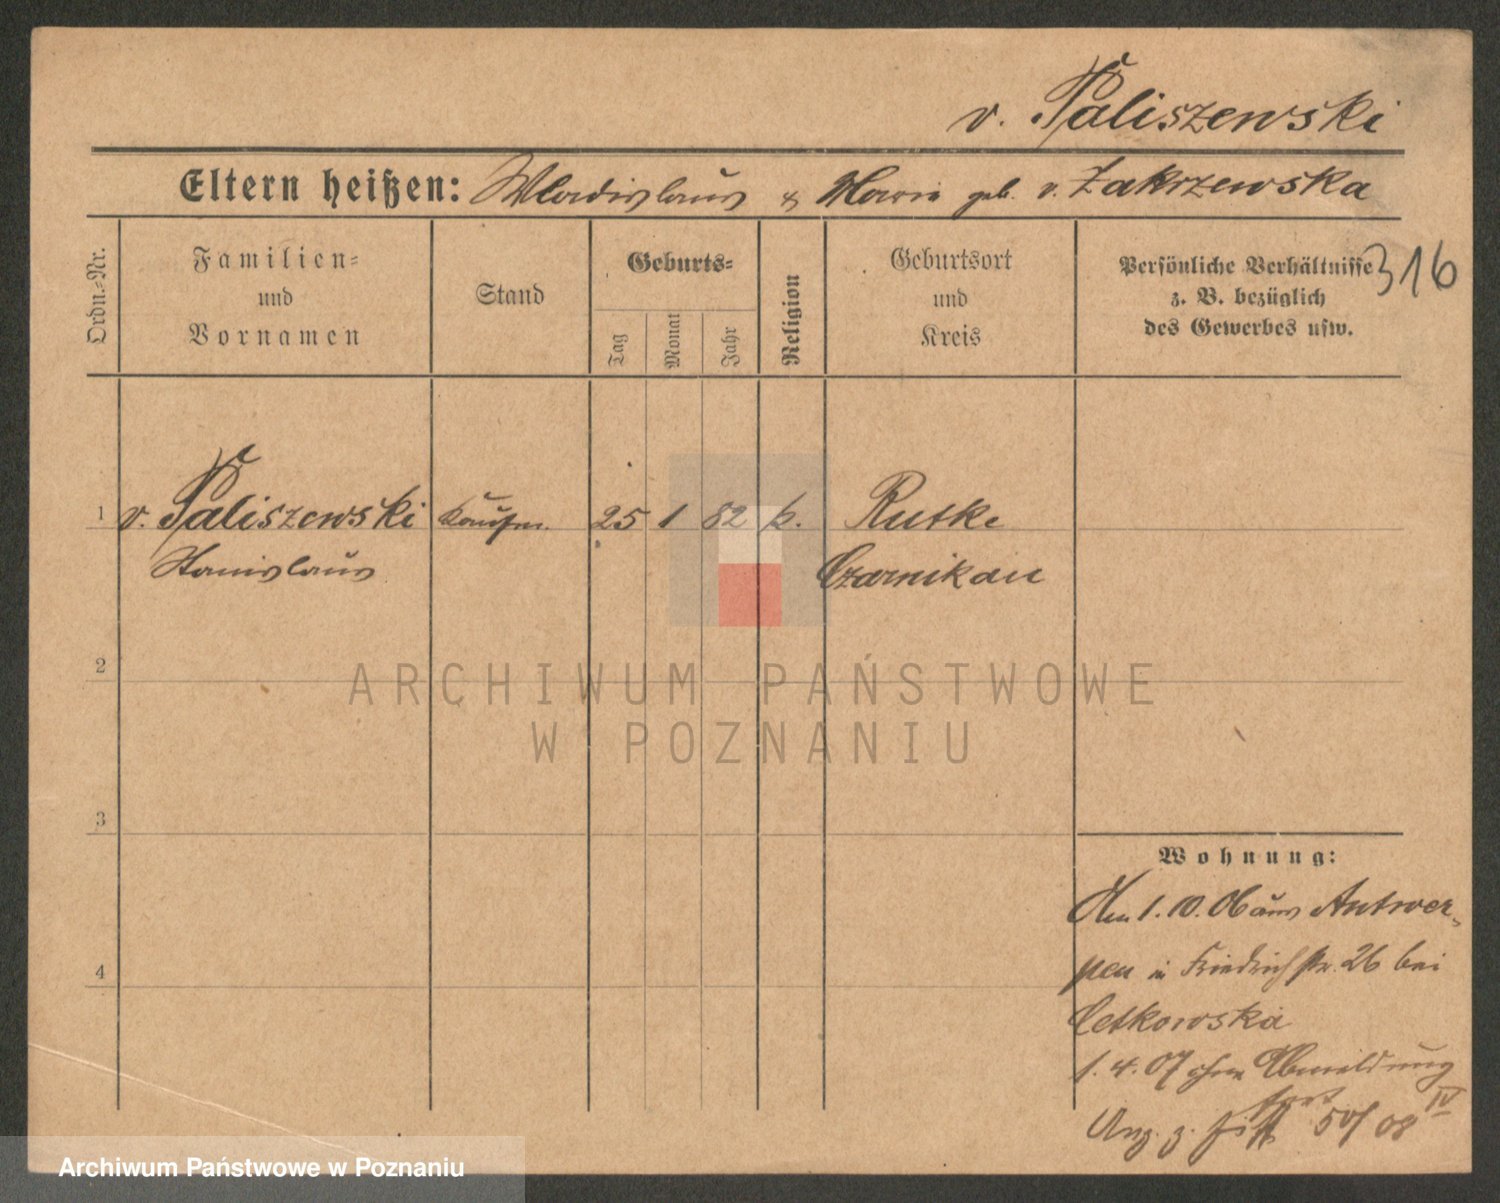 v. Paliszewski
Eltern heißen: Wladislaus & Marie geb. v. Zakrzewska
Ordn.-Nr.
Familien-
und
Vornamen
Stand
Geburts-
Tag
Monat
Jahr
Religion
Geburtsort
und
Kreis
Persönliche Verhältnisse
z. B. bezüglich
des Gewerbes usw.
316
1 v. Paliszewski Kaufm. 25 1 82 k. Rutke
Stanislaus Czarnikau
2
3
4
ARCHIWUM PAŃSTWOWE
W POZNANIU
Wohnung:
Den 1.10.06 aus Antwer-
pen in Friedrichstr. 26 bei
Cetkowska
1.4.07 ohne Abmeldung
fort
Anz. z. 50/08 IV
Archiwum Państwowe w Poznaniu